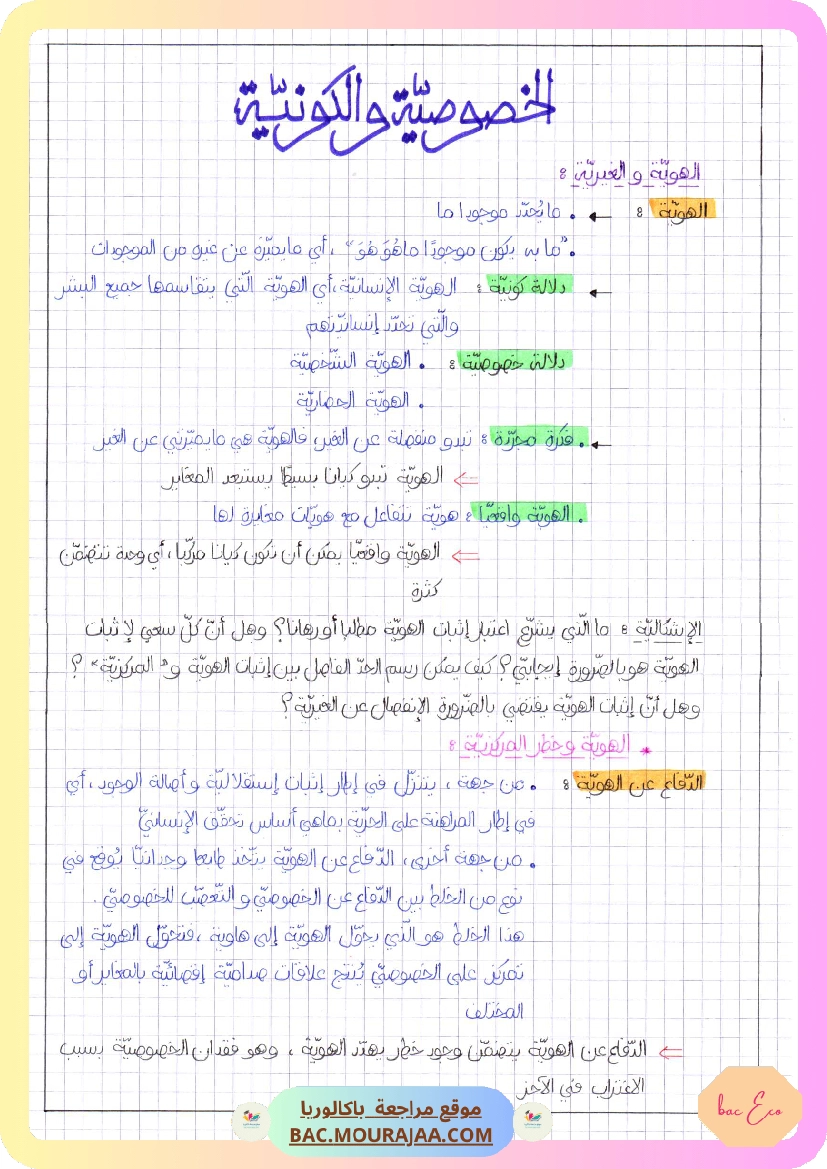 الخصوصيّة والكونيّة
الهويّة والغيريّة :
الهويّة : ← • ما يُحدّد موجودا ما
• "ما به يكون موجودًا ما هُوَ هُوَ"، أي ما يميّزه عن غيره من الموجودات
← دلالة كونيّة : الهويّة الإنسانيّة، أي الهويّة الّتي يتقاسمها جميع البشر
والّتي تحدّد إنسانيّتهم
دلالة خصوصيّة : • الهويّة الشّخصيّة
• الهويّة الحضاريّة
← • فكرة مجرّدة : تبدو منفصلة عن الغير، فالهويّة هي ما يميّزني عن الغير
⇐ الهويّة تبدو كيانا بسيطا يستبعد المغاير
• الهويّة واقعيّا : هويّة تتفاعل مع هويّات مغايرة لها
⇐ الهويّة واقعيّا يمكن أن تكون كيانا مركّبا، أي وحدة تتضمّن
كثرة
الإشكاليّة : ما الّذي يشرّع اعتبار إثبات الهويّة مطلبا أو رهانا؟ وهل أنّ كلّ سعي لإثبات
الهويّة هو بالضّرورة إيجابيّ؟ كيف يمكن رسم الحدّ الفاصل بين إثبات الهويّة و"المركزيّة" ؟
وهل أنّ إثبات الهويّة يقتضي بالضّرورة الإنفصال عن الغيريّة؟
* الهويّة وخطر المركزيّة :
الدّفاع عن الهويّة : • من جهة، يتنزّل في إطار إثبات إستقلاليّة وأصالة الوجود، أي
في إطار المراهنة على الحرّيّة بماهي أساس تحقّق الإنسانيّ
• من جهة أخرى، الدّفاع عن الهويّة يتّخذ طابعا وجدانيّا يُوقع في
نوع من الخلط بين الدّفاع عن الخصوصيّ و التّعصّب للخصوصيّ.
هذا الخلط هو الّذي يحوّل الهويّة إلى هاوية، فتتحوّل الهويّة إلى
تمركز على الخصوصيّ يُنتج علاقات صداميّة إقصائيّة بالمغاير أو
المختلف
⇐ الدّفاع عن الهويّة يتضمّن وجود خطر يهدّد الهويّة، وهو فقدان الخصوصيّة بسبب
الاغتراب في الآخر
موقع مراجعة باكالوريا
BAC.MOURAJAA.COM
bac Eco